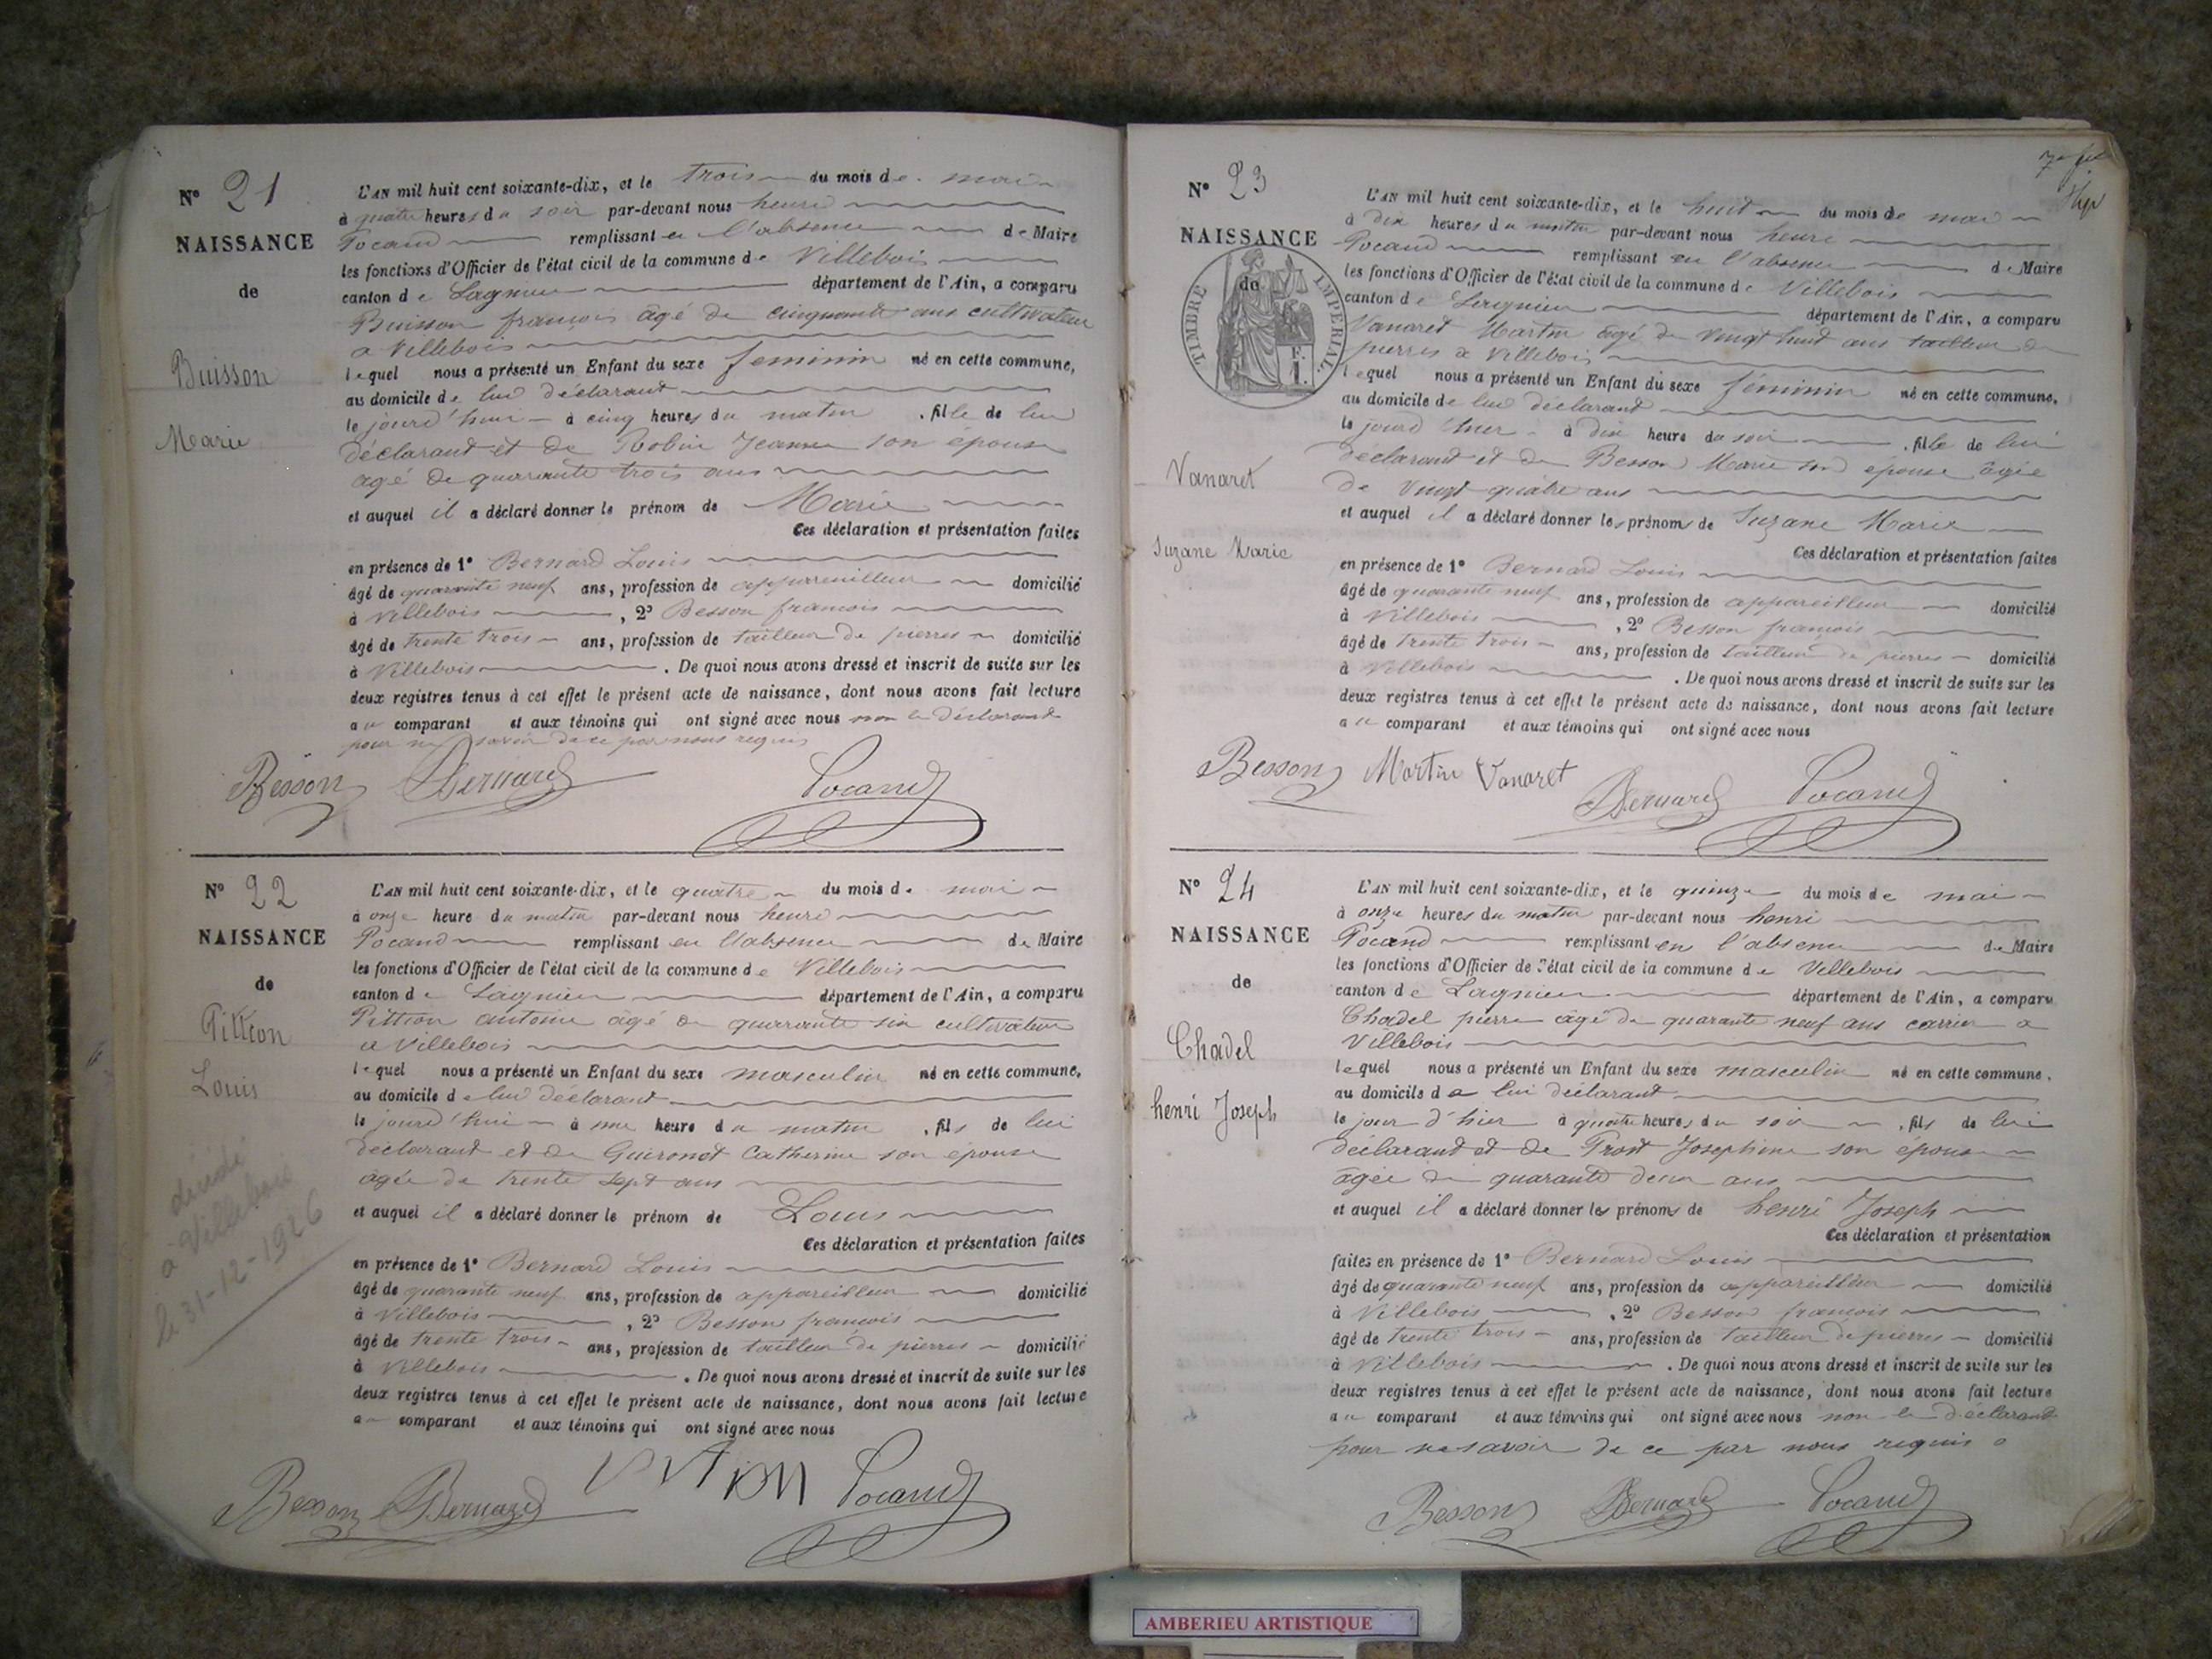 N° 21
NAISSANCE
de
Buisson
Marie
L'AN mil huit cent soixante-dix, et le trois du mois de mai
à quatre heures du soir par-devant nous henri
Pocand remplissant en l'absence de Maire
les fonctions d'Officier de l'état civil de la commune de Villebois
canton de Lagnieu département de l'Ain, a comparu
Buisson françois âgé de cinquante ans cultivateur
a Villebois
lequel nous a présenté un Enfant du sexe feminin né en cette commune,
au domicile de lui déclarant
le jourd'hui à cinq heures du matin , fille de lui
déclarant et de Robin Jeanne son épouse
âgé de quarante trois ans
et auquel il a déclaré donner le prénom de Marie
Ces déclaration et présentation faites
en présence de 1° Bernard Louis
âgé de quarante neuf ans, profession de appareilleur domicilié
à Villebois , 2° Besson francois
âgé de trente trois ans, profession de tailleur de pierres domicilié
à Villebois . De quoi nous avons dressé et inscrit de suite sur les
deux registres tenus à cet effet le présent acte de naissance, dont nous avons fait lecture
au comparant et aux témoins qui ont signé avec nous non le déclarant
pour ne savoir de ce par nous requis
Besson Bernard Pocand
N° 22
NAISSANCE
de
Pittion
Louis
décédé
à Villebois
le 31-12-1926
L'AN mil huit cent soixante-dix, et le quatre du mois de mai
à onze heure du matin par-devant nous henri
Pocand remplissant en l'absence de Maire
les fonctions d'Officier de l'état civil de la commune de Villebois
canton de Lagnieu département de l'Ain, a comparu
Pittion antoine âgé de quarante six cultivateur
a Villebois
lequel nous a présenté un Enfant du sexe masculin né en cette commune,
au domicile de lui déclarant
le jourd'hui à une heure du matin , fils de lui
déclarant et de Guironot Catherine son épouse
âgée de trente sept ans
et auquel il a déclaré donner le prénom de Louis
Ces déclaration et présentation faites
en présence de 1° Bernard Louis
âgé de quarante neuf ans, profession de appareilleur domicilié
à Villebois , 2° Besson françois
âgé de trente trois ans, profession de tailleur de pierres domicilié
à Villebois . De quoi nous avons dressé et inscrit de suite sur les
deux registres tenus à cet effet le présent acte de naissance, dont nous avons fait lecture
au comparant et aux témoins qui ont signé avec nous
Besson Bernard Pocand
N° 23
NAISSANCE
de
TIMBRE IMPERIAL
Vanaret
Suzane Marie
L'AN mil huit cent soixante-dix, et le huit du mois de mai
à dix heures du matin par-devant nous henri
Pocand remplissant en l'absence de Maire
les fonctions d'Officier de l'état civil de la commune de Villebois
canton de Lagnieu département de l'Ain, a comparu
Vanaret Martin âgé de vingt huit ans tailleur de
pierres a Villebois
lequel nous a présenté un Enfant du sexe féminin né en cette commune,
au domicile de lui déclarant
le jourd'hier à dix heure du soir , fille de lui
déclarant et de Besson Marie son épouse âgée
de vingt quatre ans
et auquel il a déclaré donner les prénoms de Suzane Marie
Ces déclaration et présentation faites
en présence de 1° Bernard Louis
âgé de quarante neuf ans, profession de appareilleur domicilié
à Villebois , 2° Besson françois
âgé de trente trois ans, profession de tailleur de pierres domicilié
à Villebois . De quoi nous avons dressé et inscrit de suite sur les
deux registres tenus à cet effet le présent acte de naissance, dont nous avons fait lecture
au comparant et aux témoins qui ont signé avec nous
Besson Martin Vanaret Bernard Pocand
N° 24
NAISSANCE
de
Chadel
henri Joseph
L'AN mil huit cent soixante-dix, et le quinze du mois de mai
à onze heures du matin par-devant nous henri
Pocand remplissant en l'absence de Maire
les fonctions d'Officier de l'état civil de la commune de Villebois
canton de Lagnieu département de l'Ain, a comparu
Chadel pierre âgé de quarante neuf ans carrier a
Villebois
lequel nous a présenté un Enfant du sexe masculin né en cette commune,
au domicile de lui déclarant
le jour d'hier à quatre heures du soir , fils de lui
déclarant et de Prost Josephine son épouse
âgée de quarante deux ans
et auquel il a déclaré donner les prénoms de henri Joseph
Ces déclaration et présentation
faites en présence de 1° Bernard Louis
âgé de quarante neuf ans, profession de appareilleur domicilié
à Villebois , 2° Besson françois
âgé de trente trois ans, profession de tailleur de pierres domicilié
à Villebois . De quoi nous avons dressé et inscrit de suite sur les
deux registres tenus à cet effet le présent acte de naissance, dont nous avons fait lecture
au comparant et aux témoins qui ont signé avec nous non le déclarant
pour ne savoir de ce par nous requis
Besson Bernard Pocand
AMBERIEU ARTISTIQUE